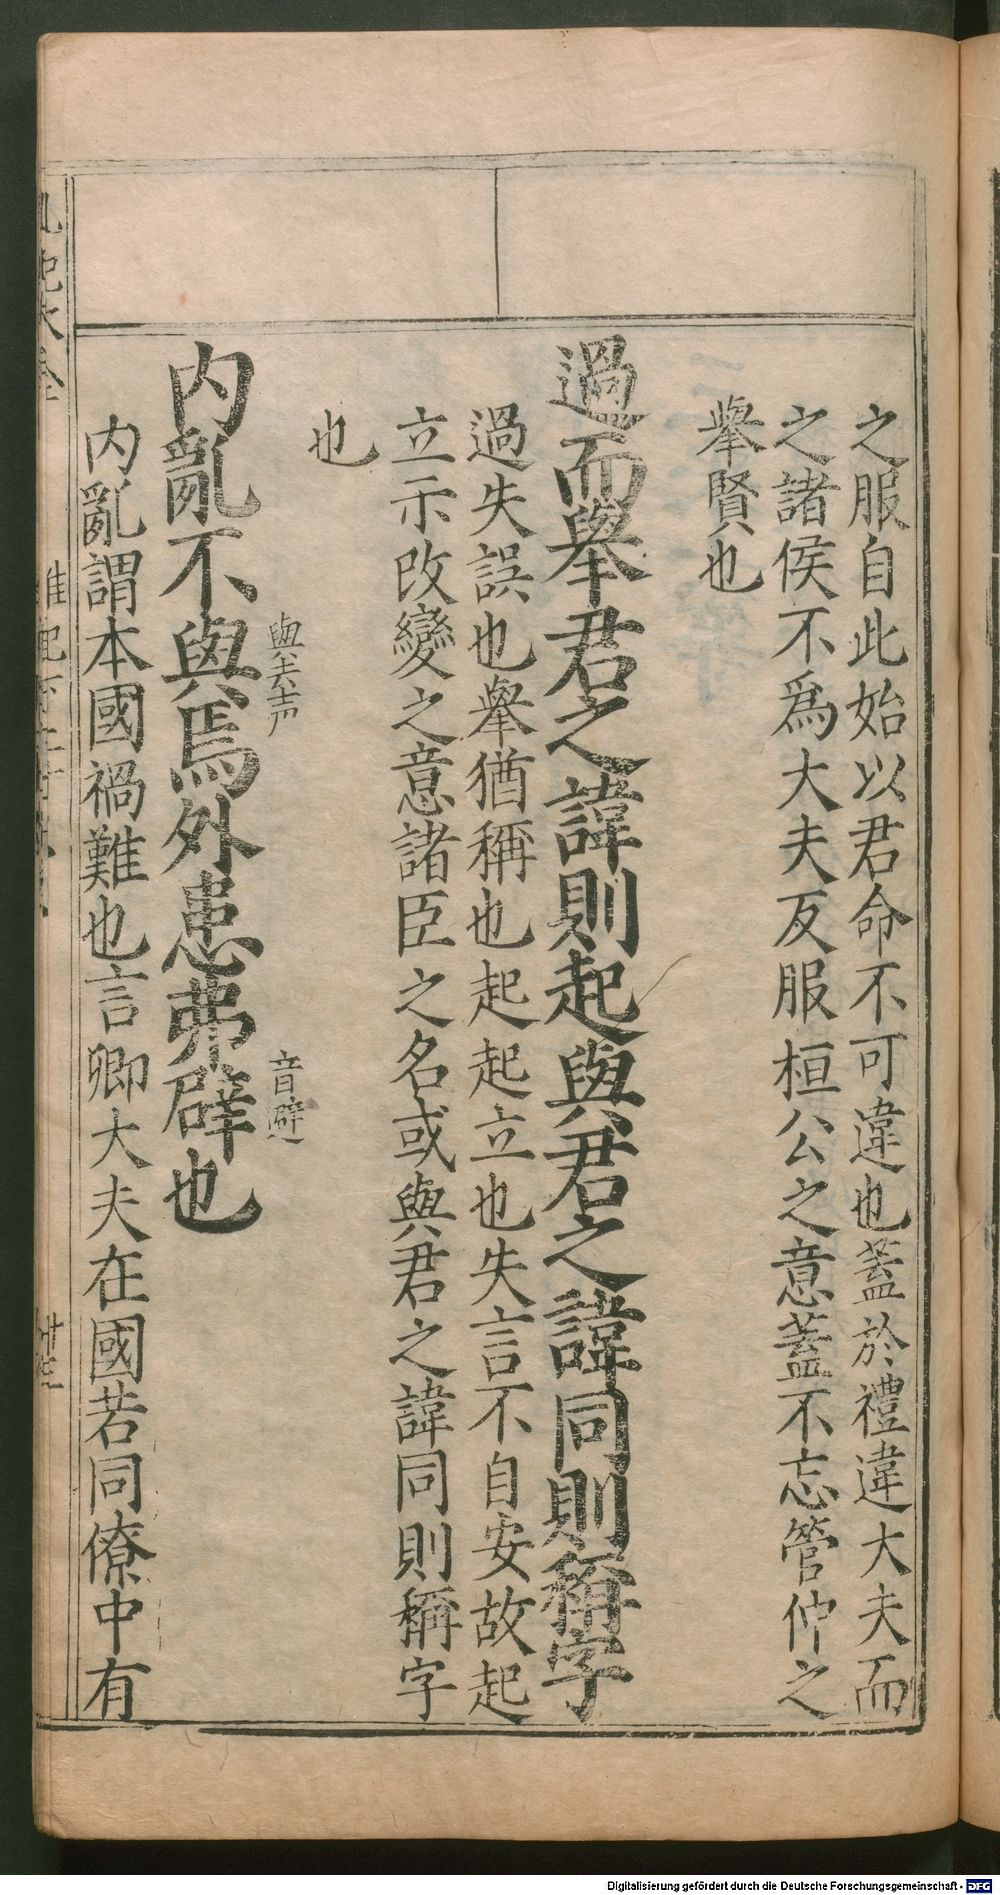 之服自此始以君命不可違也蓋於禮違大夫而
之諸侯不爲大夫反服桓公之意蓋不忘管仲之
舉賢也
過而舉君之諱則起與君之諱同則稱字
過失誤也舉猶稱也起起立也失言不自安故起
立示改變之意諸臣之名或與君之諱同則稱字
也
與去声
音避
内亂不與焉外患弗辟也
内亂謂本國禍難也言卿大夫在國若同僚中有
Digitalisierung gefördert durch die Deutsche Forschungsgemeinschaft - DFG